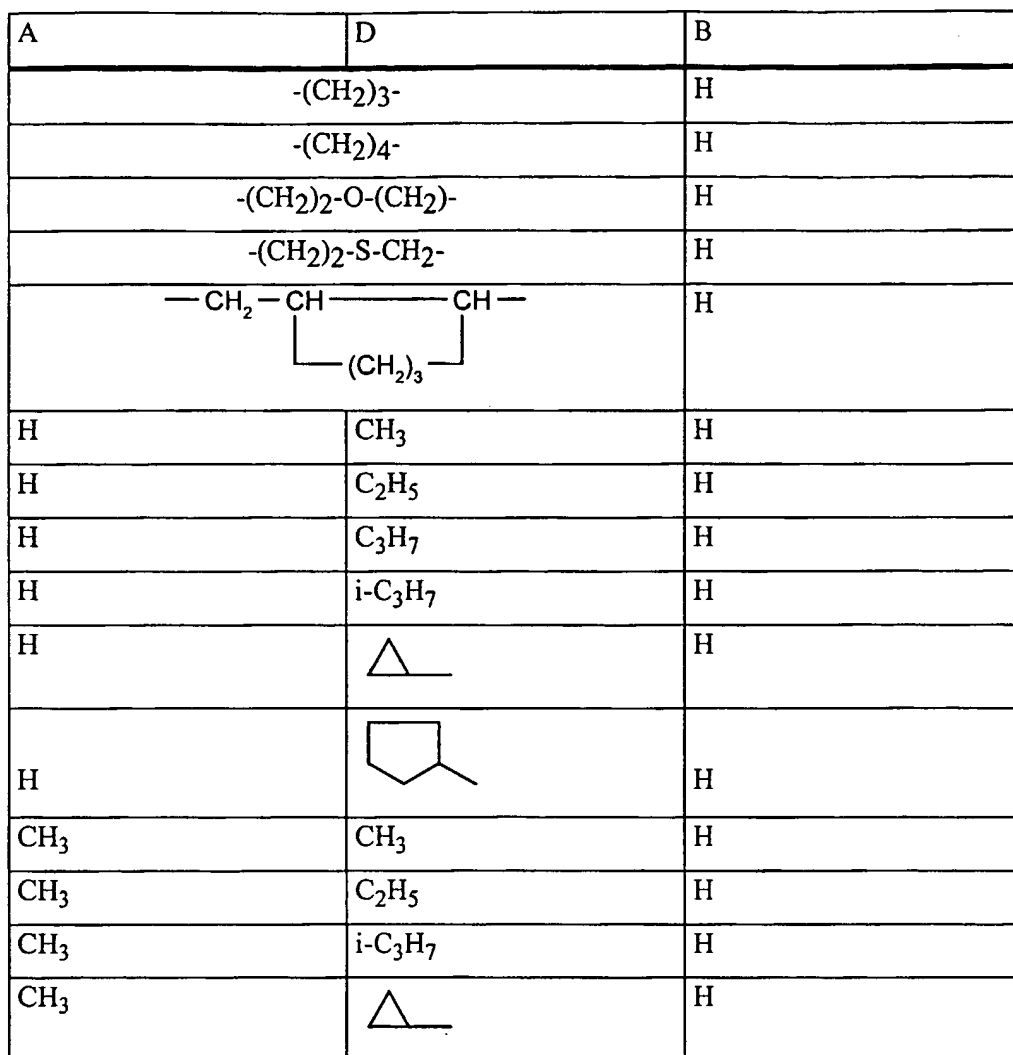 A D B
-(CH2)3- H
-(CH2)4- H
-(CH2)2-O-(CH2)- H
-(CH2)2-S-CH2- H
CH2 CH CH H
(CH2)3
H CH3 H
H C2H5 H
H C3H7 H
H i-C3H7 H
H H
H H
CH3 CH3 H
CH3 C2H5 H
CH3 i-C3H7 H
CH3 H